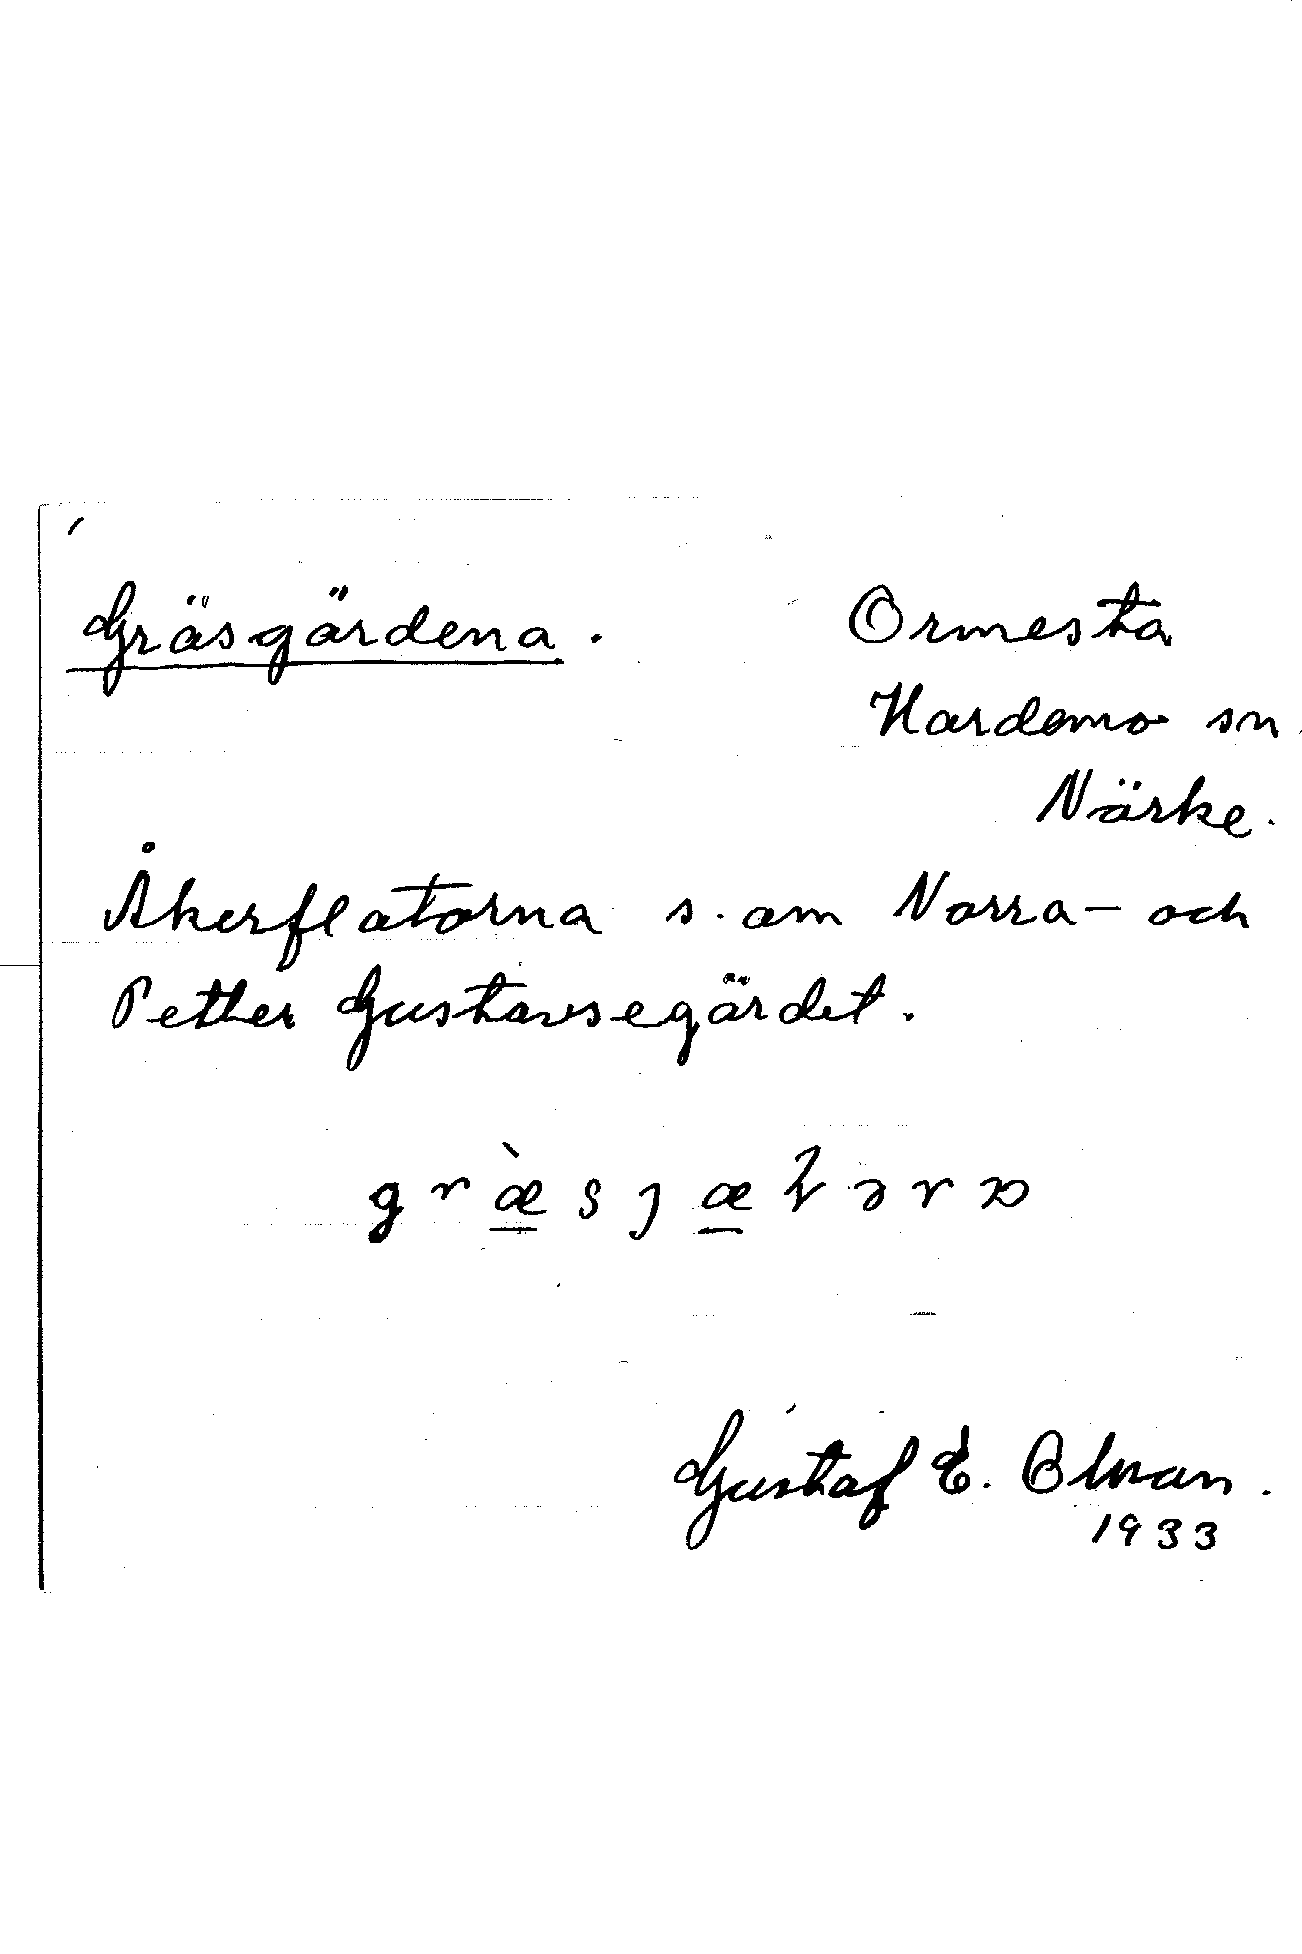 Gräsgärdena. Ormesta
Hardemo sn.
Närke.
Åkerflatorna s. om Norra- och
Petter Gustavsegärdet.
Gustaf E.
1933